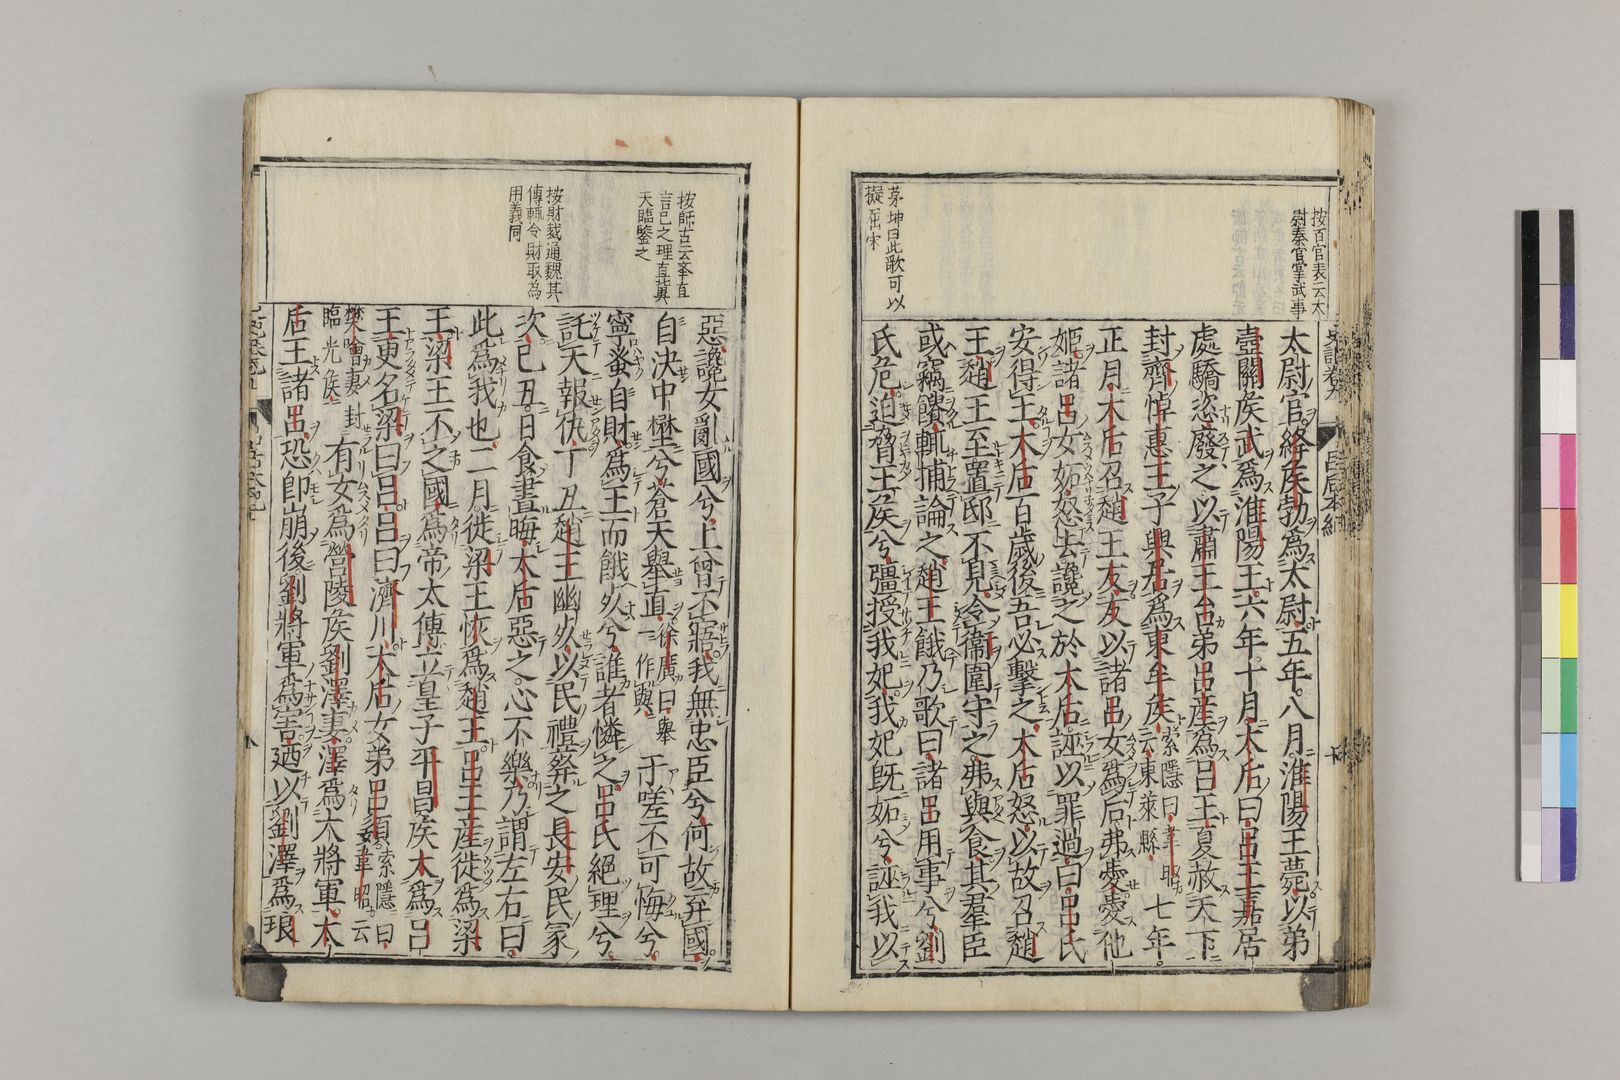 按百官表云太
尉秦官掌武事
茅坤曰此歌可以
擬屈宋
太尉官絳侯勃爲太尉五年八月淮陽王薨以弟
壺關侯武爲淮陽王六年十月太后曰呂王嘉居
處驕恣廢之以肅王台弟呂産爲呂王夏赦天下
封齊悼惠王子興居爲東牟侯索隱曰韋昭云東萊縣七年
正月太后召趙王友友以諸呂女爲后弗愛愛他
姬諸呂女妬怒去讒之於太后誣以罪過曰呂氏
安得王太后百歲後吾必擊之太后怒以故召趙
王趙王至置邸不見令衞圍守之弗與食其羣臣
或竊饋輒捕論之趙王餓乃歌曰諸呂用事兮劉
氏危迫脅王侯兮彊授我妃我妃旣妬兮誣我以
按師古云擧直
言己之理直冀
天臨鑒之
按財裁通魏其
傳輒令財取為
用義同
惡讒女亂國兮上曾不寤我無忠臣兮何故弃國
自決中壄兮蒼天擧直徐廣曰擧一作與于嗟不可悔兮
寧蚤自財爲王而餓死兮誰者憐之呂氏絕理兮
託天報仇丁丑趙王幽死以民禮葬之長安民冢
次己丑日食晝晦太后惡之心不樂乃謂左右曰
此爲我也二月徙梁王恢爲趙王呂王産徙爲梁
王梁王不之國爲帝太傅立皇子平昌侯太爲呂
王更名梁曰呂呂曰濟川太后女弟呂嬃索隱曰韋昭云
樊噲妻封臨光侯有女爲營陵侯劉澤妻澤爲大將軍太
后王諸呂恐卽崩後劉將軍爲害廼以劉澤爲琅